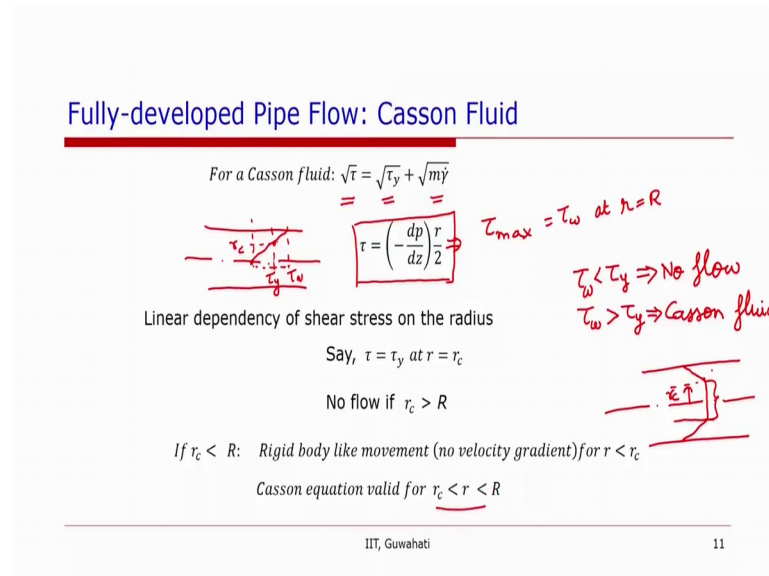 Fully-developed Pipe Flow: Casson Fluid
For a Casson fluid: √τ = √τ_y + √mγ̇
τ = (−dp/dz) r/2 ⇒ τ_max = τ_w at r=R
r_c
τ_y τ_w
τ_w < τ_y ⇒ No flow
τ_w > τ_y ⇒ Casson flui
Linear dependency of shear stress on the radius
Say, τ = τ_y at r = r_c
No flow if r_c > R
If r_c < R: Rigid body like movement (no velocity gradient)for r < r_c
Casson equation valid for r_c < r < R
IIT, Guwahati
11